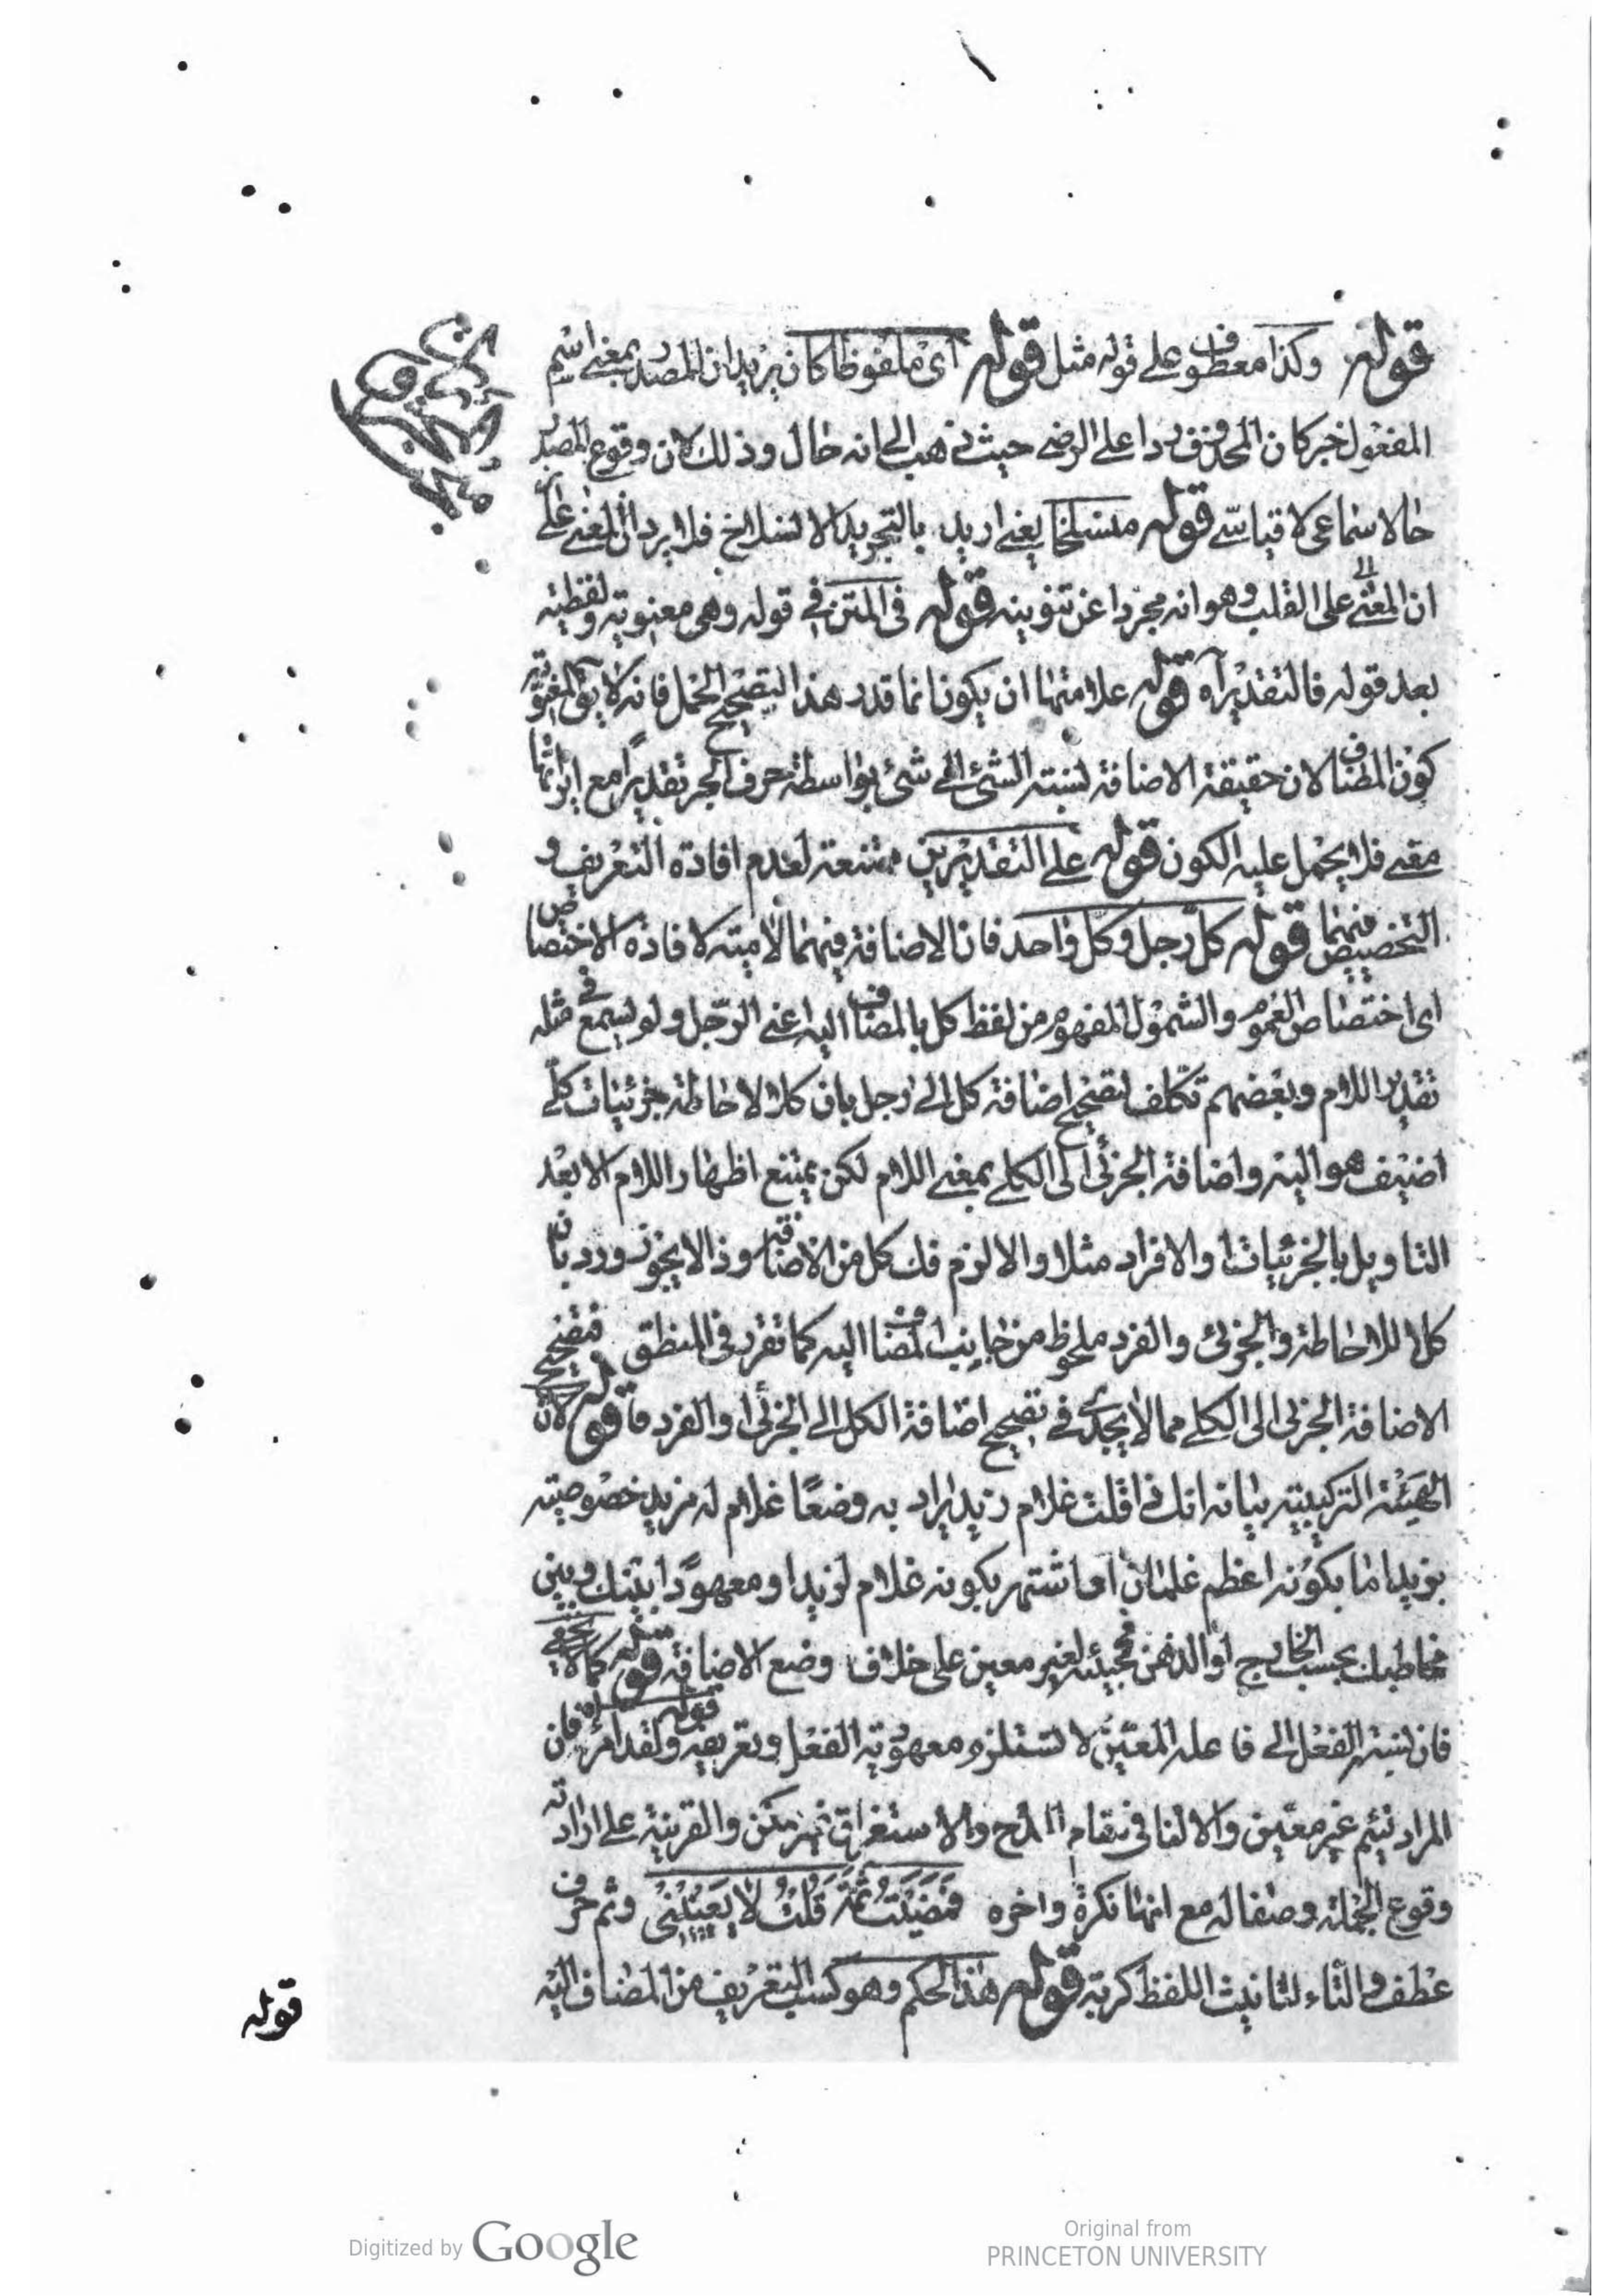 قوله وكذا معطوف على قوله مثل قوله اى ملفوظا كان يريد ان المصدر بمعنى اسم
المفعول خبر كان المحذوف ردا على الرضى حيث ذهب الى انه حال وذلك لان وقوع المصدر
حالا سماعى لا قياسى قوله منسلخا يعنى اريد بالتجريد الانسلاخ فلا يرد ان المعنى على
ان المعنى على القلب وهو انه مجردا عن تنوينه قوله فى المتن فى قوله وهى معنوية ولفظية
بعد قوله فالتقدير آه قوله علامتها ان يكون انما قدر هذا لتصحيح الحمل فانه لا يق المعنوية
كون المضاف لان حقيقة الاضافة نسبة الشئ الى شئ بواسطة حرف الجر تقديرا مع اثرها
معنى فلا يحمل عليه الكون قوله على التقديرين ممتنعة لعدم افادة التعريف و
التخصيص فيهما قوله كل رجل وكل واحد فان الاضافة فيهما لامية لافادة الاختصاص
اى اختصاص العموم والشمول المفهوم من لفظ كل بالمضاف اليه اعنى الرجل ولو لم يسمع فى مثله
تقدير اللام وبعضهم تكلف لتصحيح اضافة كل الى رجل بان كلا لاحاطة جزئيات كلى
اضيف هو اليه واضافة الجزئى الى الكلى بمعنى اللام لكن يمتنع اظهار اللام الا بعد
التاويل بالجزئيات او الافراد مثلا والا لزم فك كل من الاضافة وذا لا يجوز ورد بان
كلا للاحاطة والجزئى والفرد ملحوظ من جانب المضاف اليه كما تقرر فى المنطق فتصحيح
الاضافة الجزئى الى الكلى مما لا يجدى فى تصحيح اضافة الكل الى الجزئى او الفرد قوله لان
الهيئة التركيبية بيانه انك اذا قلت غلام زيد يراد به وضعا غلام له مزيد خصوصية
بزيد اما بكونه اعظم غلمانه او اشتهر بكونه غلام لزيد او معهودا بينك وبين
مخاطبك بحسب الخارج او الذهن فمجيئه لغير معين على خلاف وضع الاضافة قوله كما لا يخفى
فان نسبة الفعل الى فاعله المعين لا تستلزم معهودية الفعل وتعريفه قوله ولقد امر آه فان
المراد لئيم غير معين والالفا فى مقام المدح والاستغراق غير ممكن والقرينة على ارادته
وقوع الجملة وصفا له مع انها نكرة واخره فمضيت ثمة قلت لا يعنينى وثم حرف
عطف والتاء لتانيث اللفظ كربة قوله هذا الحكم وهو كسب التعريف من المضاف اليه
قوله
Digitized by Google
Original from
PRINCETON UNIVERSITY